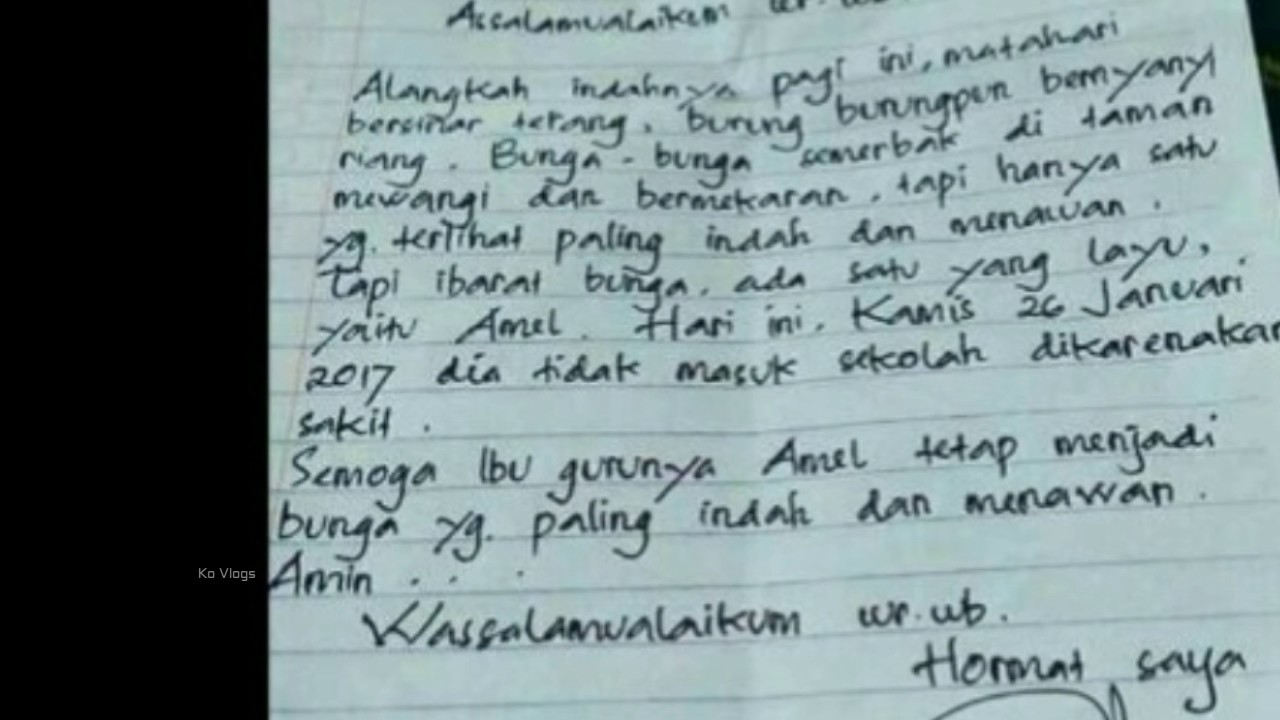 Assalamualaikum wr. wb
Alangkah indahnya pagi ini, matahari
bersinar terang, burung burungpun bernyanyi
riang. Bunga - bunga semerbak di taman
mewangi dan bermekaran, tapi hanya satu
yg. terlihat paling indah dan menawan.
Tapi ibarat bunga, ada satu yang layu,
yaitu Amel. Hari ini, Kamis 26 Januari
2017 dia tidak masuk sekolah dikarenakan
sakit.
Semoga Ibu gurunya Amel tetap menjadi
bunga yg. paling indah dan menawan.
Ko Vlogs
Amin . . .
Wassalamualaikum wr. wb.
Hormat saya